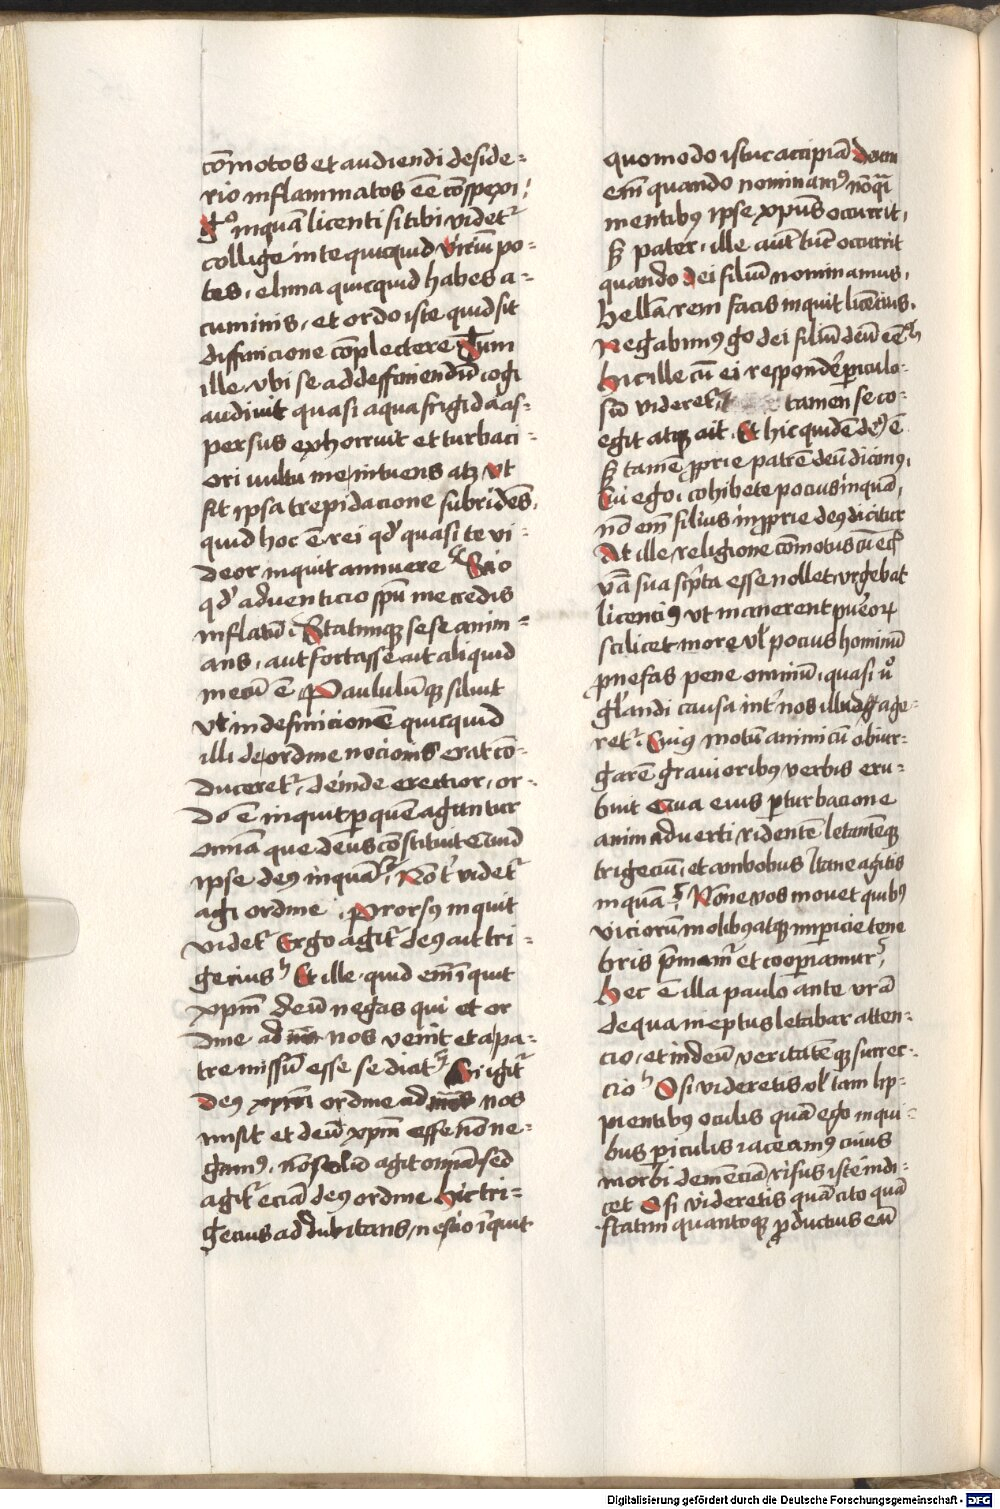 cōmotos et audiendi deside-
rio inflammatos eē cōspexi,
gº inquam licenti si tibi videtr
collige in te quicquid viriūm po-
tes, elima quicquid habes a-
cuminis, et ordo iste quid sit
diffinicione cōplectere Tum
ille vbi se ad deffiniendū cogi
audiuit quasi aqua frigida as-
persus exhorruit et turbaci-
ori uultu me intuens atz vt
fit ipsa trepidacione subridēs,
quid hoc ē rei qd' quasi te vi-
deor inquit annuere Scio
qd' aduenticio spū me credis
inflatū Statimque sese anim-
ans, aut fortasse ait aliquid
mecū ē Paululūque siluit
vt in definicionē quicquid
illi de ordine nocionis erat cō-
duceretr, deinde erectior, or-
do ē inquit per quē aguntur
omīa que deus cōstituit Quid
ipse deus inquā, Nō t' videtr
agi ordine, Prorsus inquit
videtr Ergo agitr deus ait tri-
gecius Et ille quid em̄ īquit
xpm̄ deū negas qui et or
dine ad nos venit et a pa-
tre missū esse se dicat Si igitr
deus xpm̄ ordine ad nos
misit et deū xpm̄ esse nō ne-
gamus, nō solū agit omīa sed
agitr eciā deus ordine Hic tri-
gecius addubitans, nescio īquit
quomodo istuc accipiā deum
em̄ quando nominamus nō quasi
mentibus ipse xpūs occurrit,
sed pater, ille autē tūc occurrit
quando dei filiū nominamus,
bellā rem facis inquit licēcius,
Negabimus go dei filiū deū eē
Hic ille cū ei respondere periculo-
sū videretr, tamen se co-
egit atque ait, Et hic quidē deus ē
sed tamē proprie patrē deū dicimus,
Cui ego, cohibe te pocius inquā,
nō em̄ filius inproprie deus dicitur
At ille religione cōmotus cū eciā
vā sua scripta esse nollet, vrgebat
licencius vt manerent puerorum
scilicet more vel pocius hominū
pro nefas pene omniū, quasi uº
glandi causa intr nos illud age-
retr, Cuius motū animi cū obiur-
garē grauioribus verbis eru-
buit Qua eius perturbacione
animaduerti ridentē letantēque
trigeciū, et ambobus Itane agitis
inquā Nōne vos mouet quibus
viciorū molibus atque impericie tene
bris premamur et cooperiamur
Hec ē illa paulo ante vrā
de qua ineptus letabar atten-
cio, et in deū veritatēque surrec-
cio O si videretis vel tam lip-
pientibus oculis quā ego in qui-
bus periculis iaceamus cuius
morbi demēciā risus iste indi-
cet O si videretis quā cito quā
statim quantoque productius eū